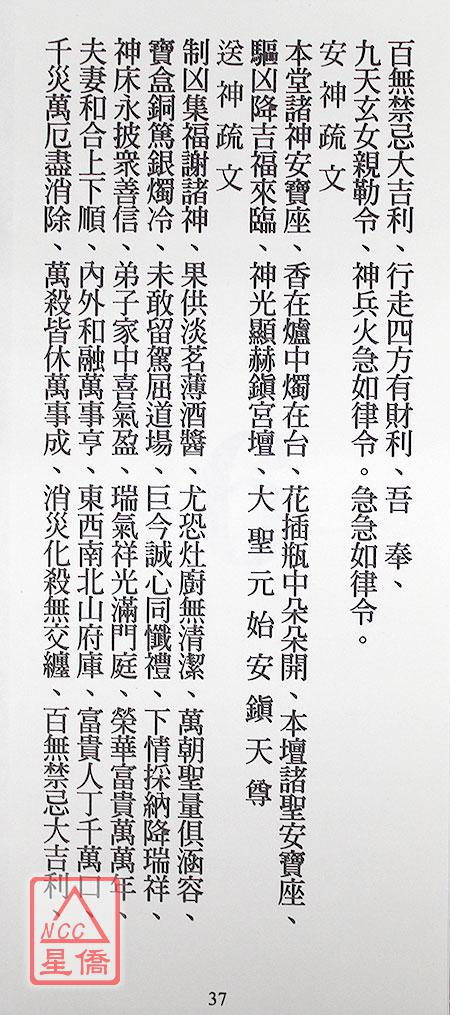 百無禁忌大吉利、行走四方有財利、吾奉、
九天玄女親勒令、神兵火急如律令。急急如律令。
安神疏文
本堂諸神安寶座、香在爐中燭在台、花插瓶中朵朵開、本壇諸聖安寶座、
驅凶降吉福來臨、神光顯赫鎮宮壇、大聖元始安鎮天尊
送神疏文
制凶集福謝諸神、果供淡茗薄酒醬、尤恐灶廚無清潔、萬朝聖量俱涵容、
寶盒銅篤銀燭冷、未敢留駕屈道場、巨今誠心同懺禮、下情採納降瑞祥、
神床永披衆善信、弟子家中喜氣盈、瑞氣祥光滿門庭、榮華富貴萬萬年、
夫妻和合上下順、內外和融萬事亨、東西南北山府庫、富貴人丁千萬口、
千災萬厄盡消除、萬殺皆休萬事成、消災化殺無交纏、百無禁忌大吉利、
NCC
星僑
37